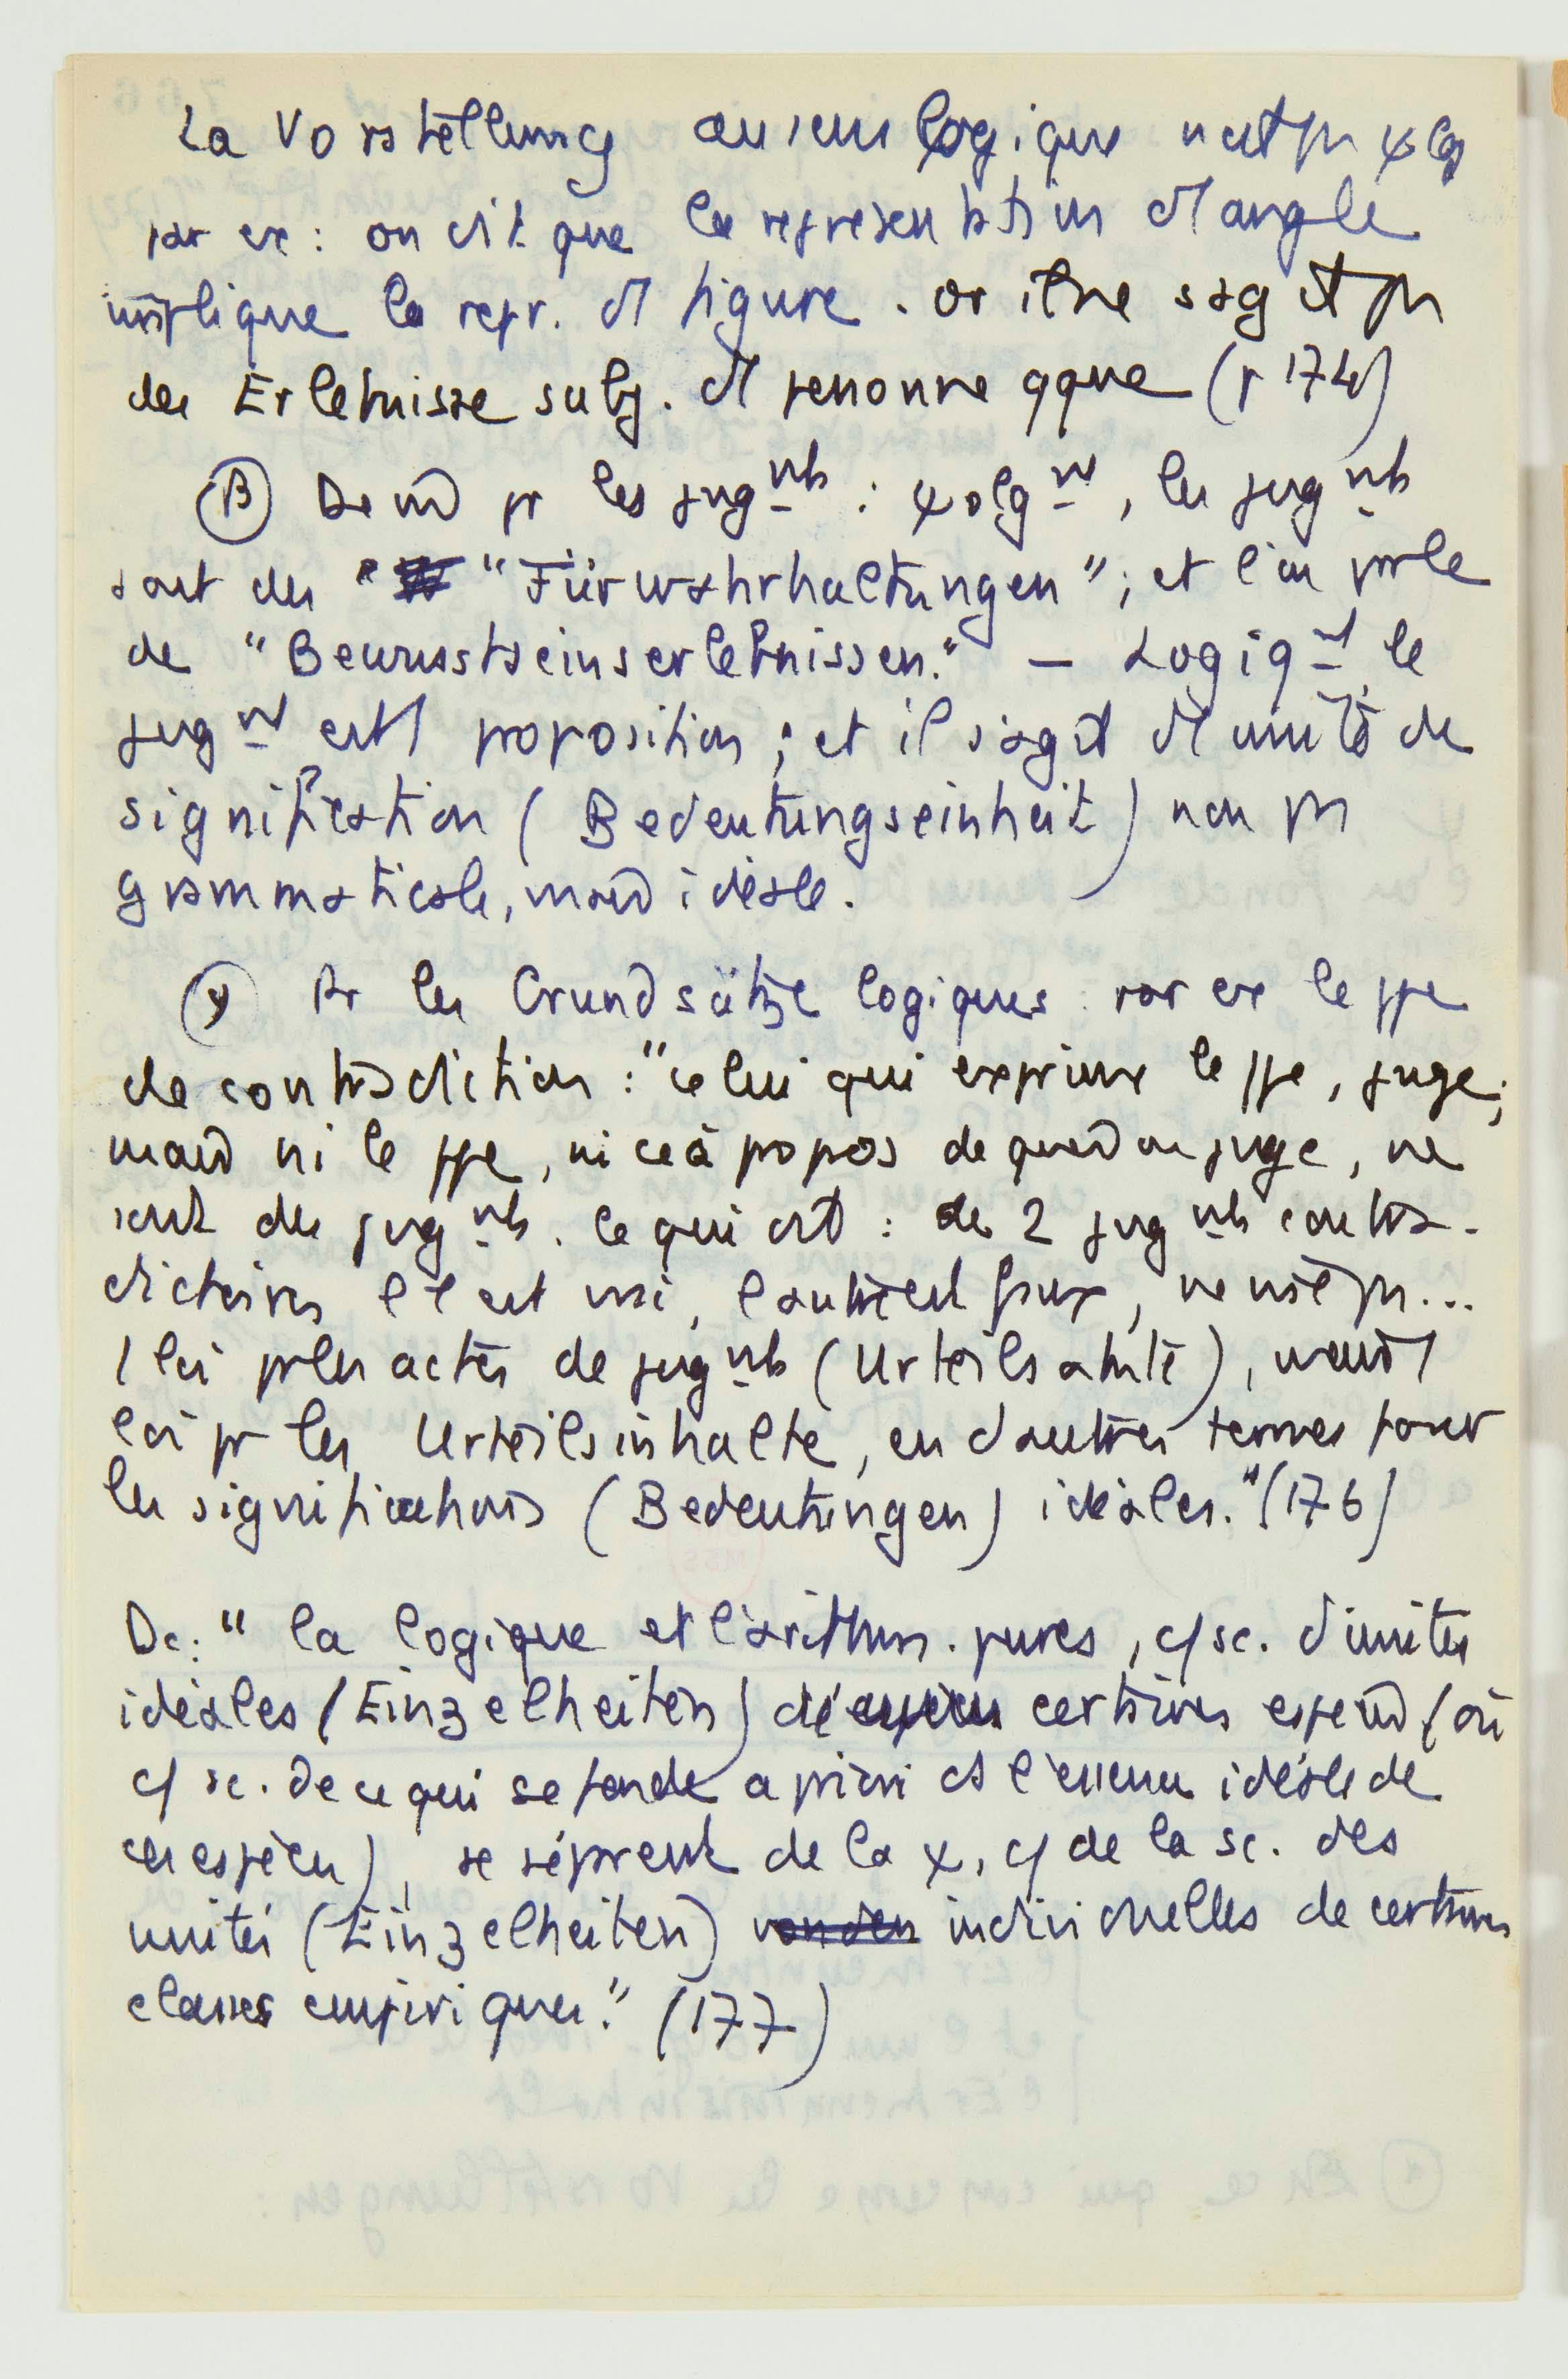 La Vorstellung au sens logique n'est ps ψlog
par ex : on dit que la représentation d'1 angle
implique la repr. d'1 figure . or il ne s'agit ps
des Erlebnisse subj. d'1 personne qque (p 174)
(β) De m̂ pr les jugnts : ψolgnt, les jugnts
sont des "Fürwahrhaltungen" ; et l'on parle
de "Bewusstseinserlebnissen." — Logiqnt, le
jugnt est 1 proposition ; et il s'agit d'1 unité de
signification (Bedeutungseinheit) non ps
grammaticale, mais idéale.
(γ) Pr les Grundsätze logiques : par ex le ppe
de contradiction : "celui qui exprime le ppe, juge ;
mais ni le ppe, ni ce à propos de quoi on juge, ne
sont des jugnts. Ce qui est : de 2 jugnts contra-
dictoires l'1 est vrai, l'autre est faux, ne vise ps...
1 loi pr les actes de jugnts (Urteilsakte), mais 1
loi pr les Urteilsinhalte, en d'autres termes pour
les significations (Bedeutungen) idéales." (176)
Dc : " la logique et l'arithm. pures, c/ sc. d'unités
idéales (Einzelheiten) de certaines espèces (ou
c/ sc. de ce qui se fonde a priori ds l'essence idéale de
ces espèces), se séparent de la ψ, c/ de la sc. des
unités (Einzelheiten) individuelles de certaines
classes empiriques." (177)